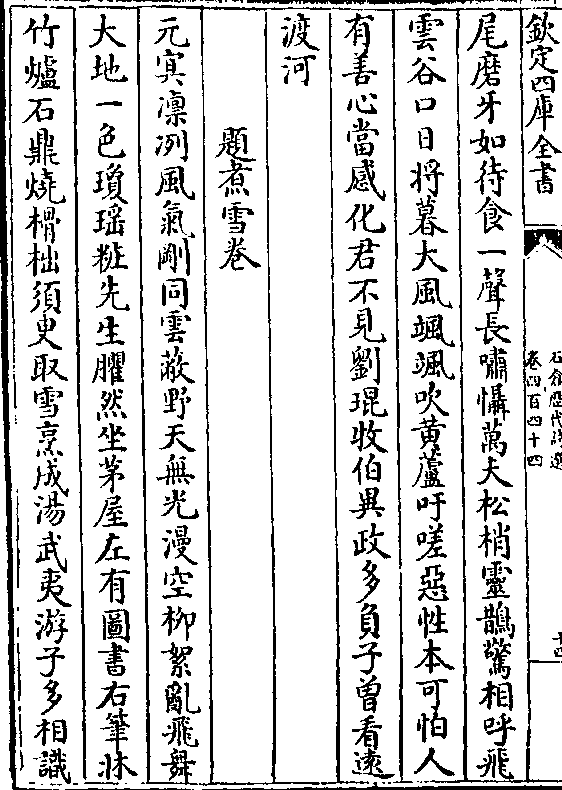 欽定四庫全書
石倉歷代詩選
卷四百四十四
十四
尾磨牙如待食一聲長嘯懾萬夫松梢靈鵲驚相呼飛
雲谷口日将暮大風颯颯吹黄蘆吁嗟惡性本可怕人
有善心當感化君不見劉琨牧伯異政多負子曽看逺
渡河
題煮雪卷
元冥凛冽風氣剛同雲蔽野天無光漫空柳絮亂飛舞
大地一色瓊瑶粧先生臞然坐茅屋左有圖書右筆牀
竹爐石鼎燒榾柮須臾取雪烹成湯武夷游子多相識